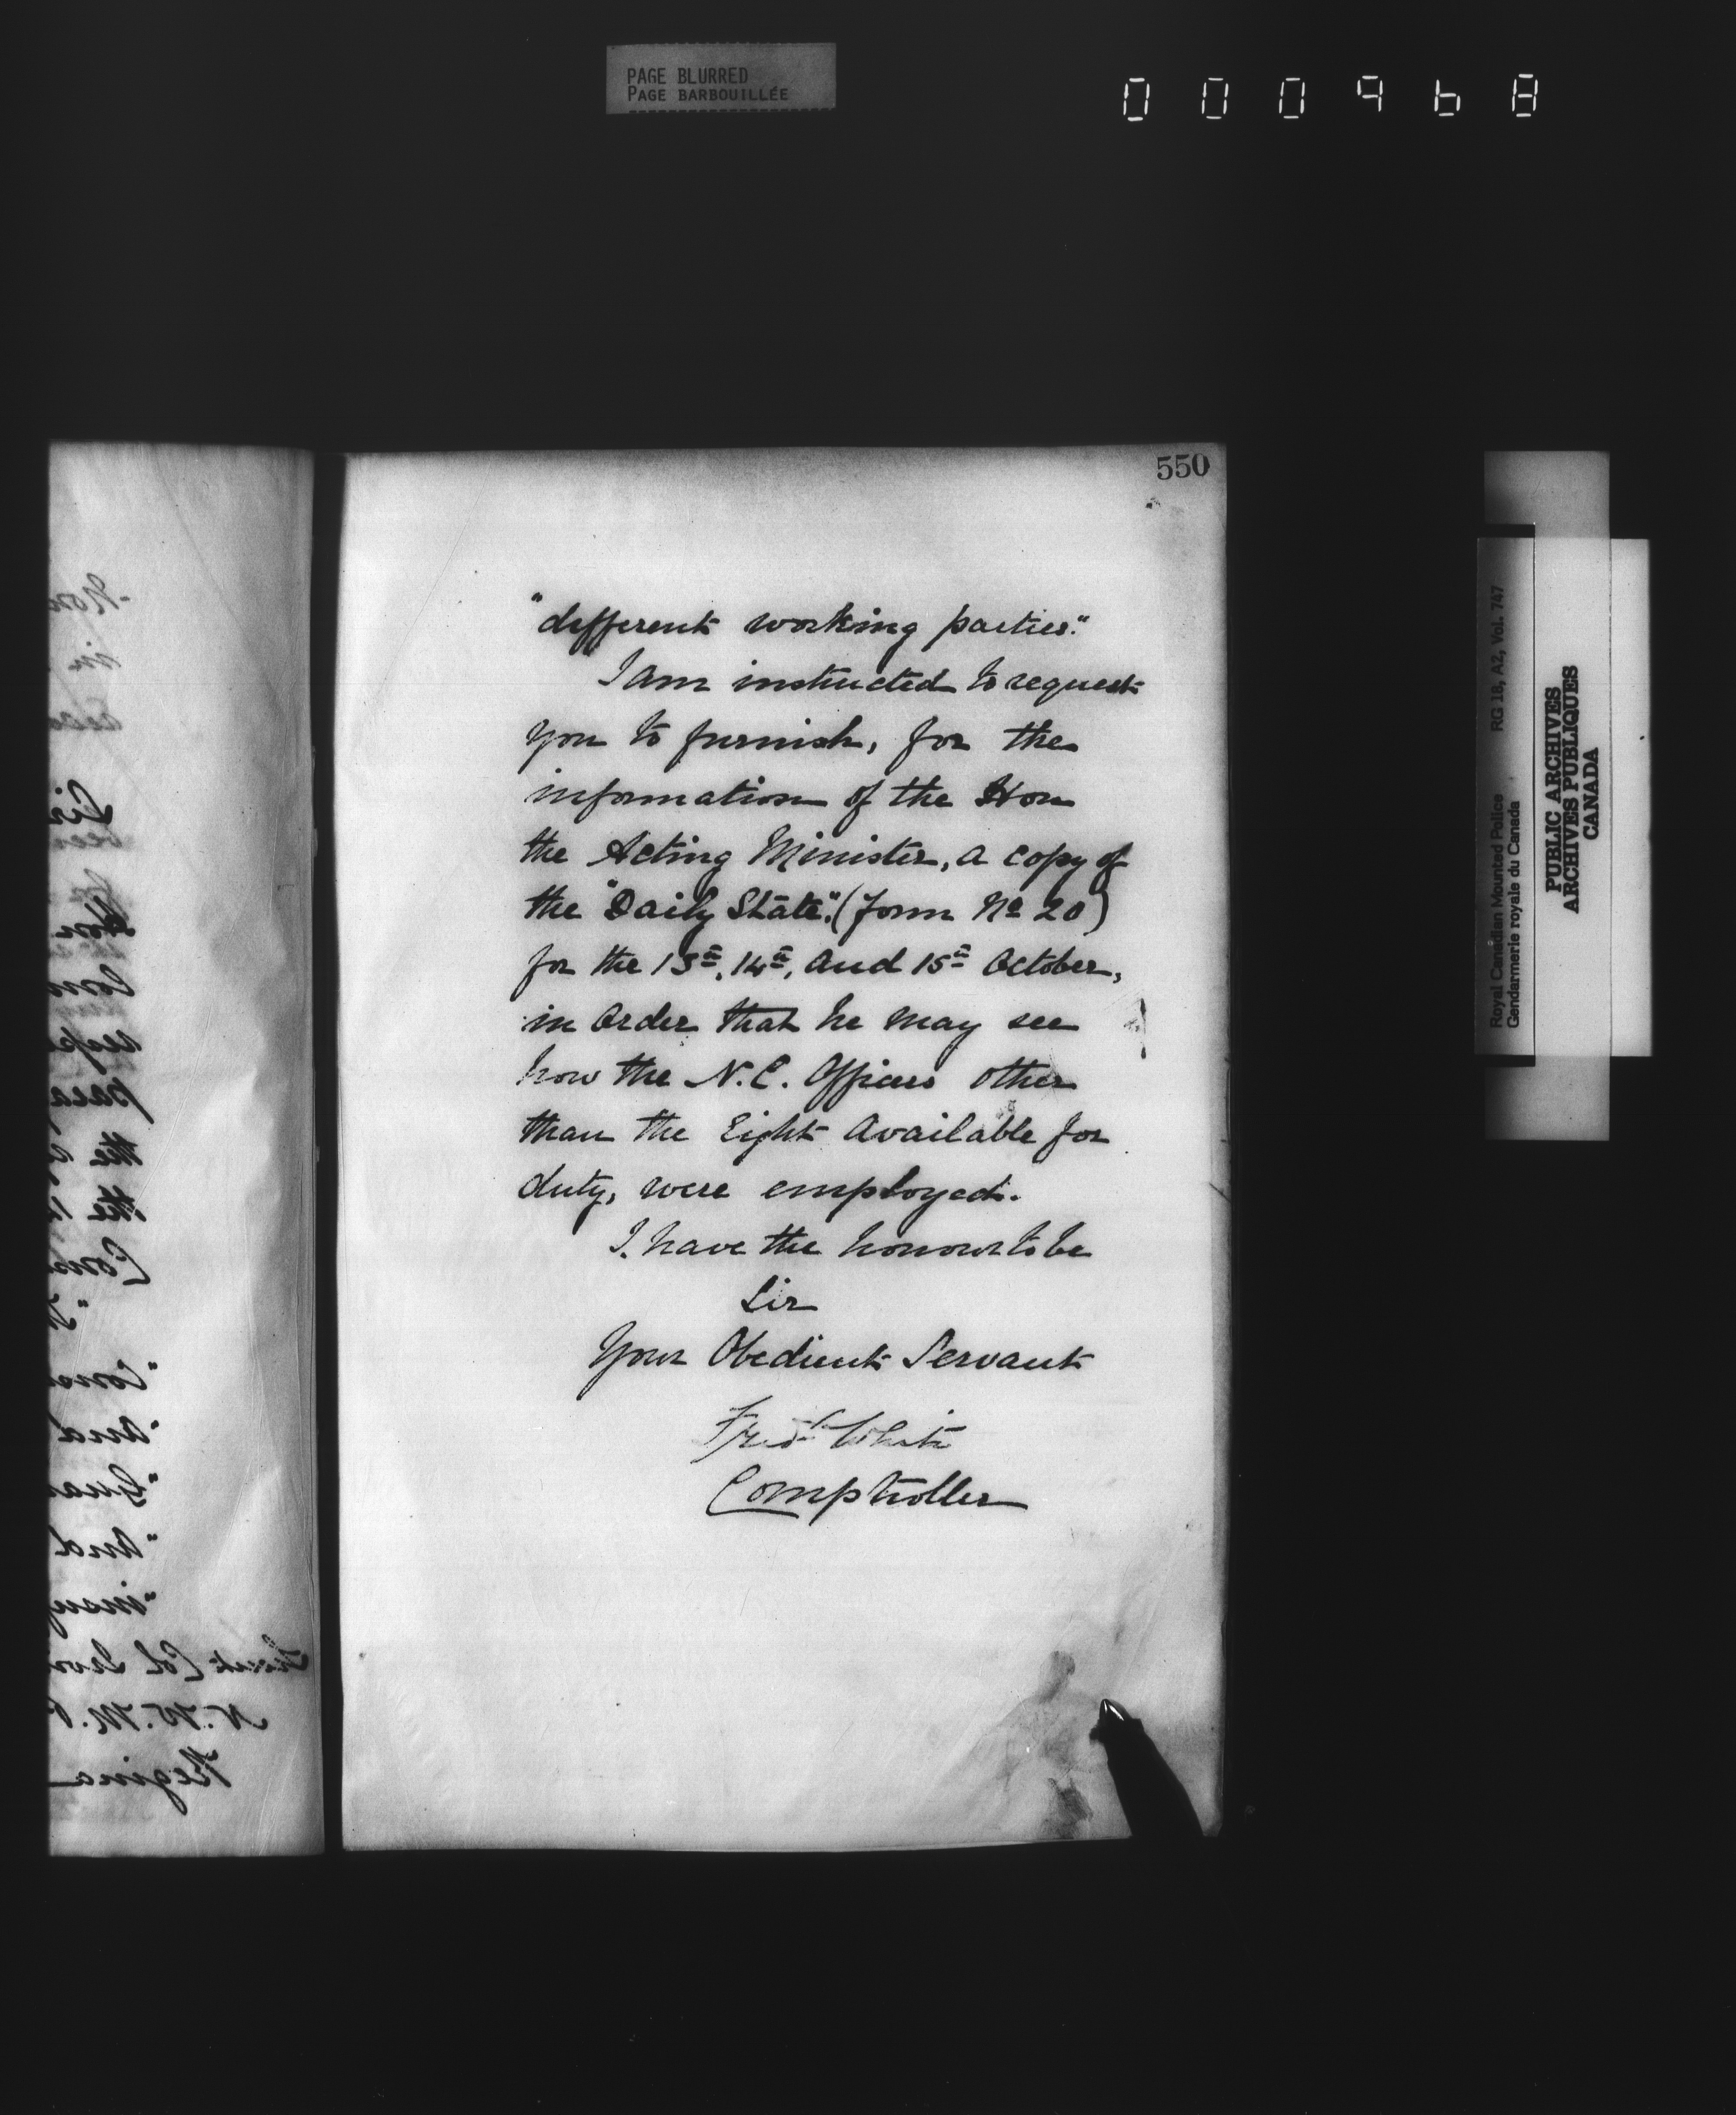 PAGE BLURRED
PAGE BARBOUILLÉE
000968
550
"different working parties."
I am instructed to request
you to furnish, for the
information of the Hon
the Acting Minister, a copy of
the "Daily State." (Form No 20)
for the 13th, 14th, and 15th October,
in order that he may see
how the N.C. Officers other
than the Eight available for
duty, were employed.
I have the honour to be
Sir
Your Obedient Servant
Fred White
Comptroller
Royal Canadian Mounted Police RG 18, A2, Vol. 747
Gendarmerie royale du Canada
PUBLIC ARCHIVES
ARCHIVES PUBLIQUES
CANADA
in
Sir
the
the
"and
"and
N.W.M.P.
Regina